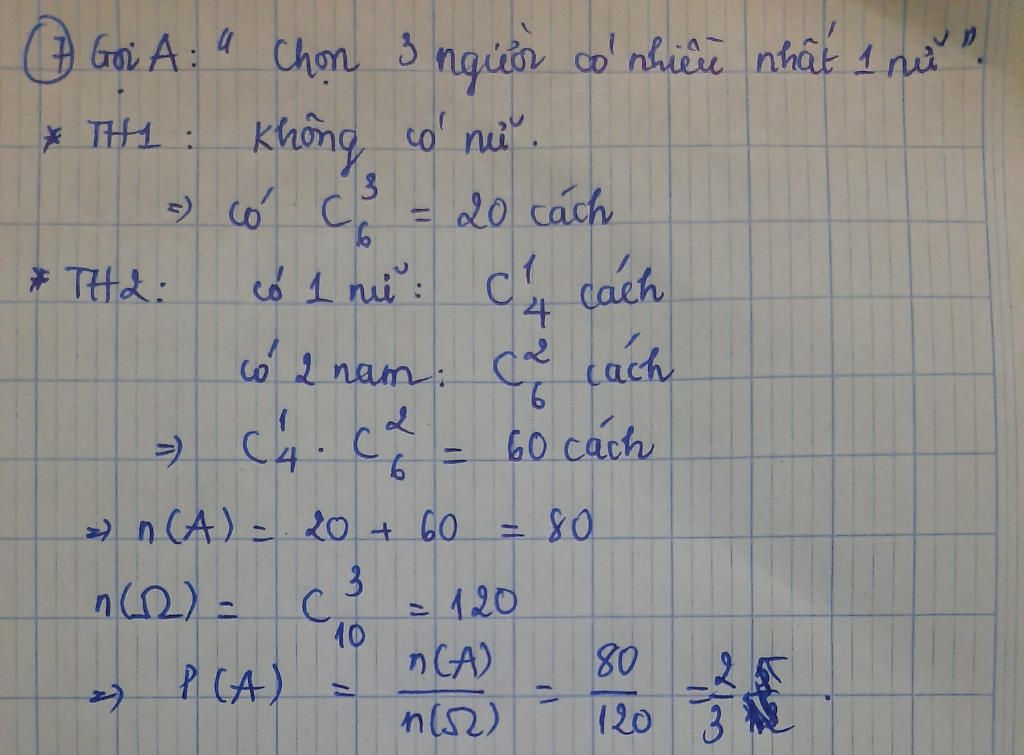 ⑦ Gọi A: " Chọn 3 người có nhiều nhất 1 nữ ".
* TH1 : không có nữ.
=> có C₆³ = 20 cách
* TH2 : có 1 nữ : C₄¹ cách
có 2 nam : C₆² cách
=> C₄¹ . C₆² = 60 cách
=> n(A) = 20 + 60 = 80
n(Ω) = C₁₀³ = 120
=> P(A) = n(A)/n(Ω) = 80/120 = 2/3 .